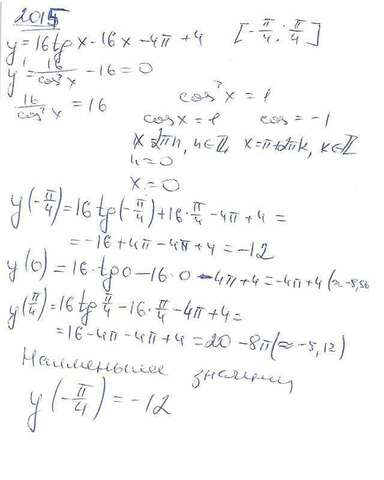 2015
y=16tgx-16x-4π+4 [-π/4; π/4]
y'=16/cos²x -16=0
16/cos²x =16 cos²x=1
cosx=1 cos=-1
x=2πn, n∈Z, x=π+2πk, k∈Z
n=0
x=0
y(-π/4)=16tg(-π/4)+16·π/4-4π+4=
=-16+4π-4π+4=-12
y(0)=16·tg0-16·0-4π+4=-4π+4(≈-8,56
y(π/4)=16tgπ/4-16·π/4-4π+4=
=16-4π-4π+4=20-8π(≈-5,12)
Наименьшее значение
y(-π/4)=-12